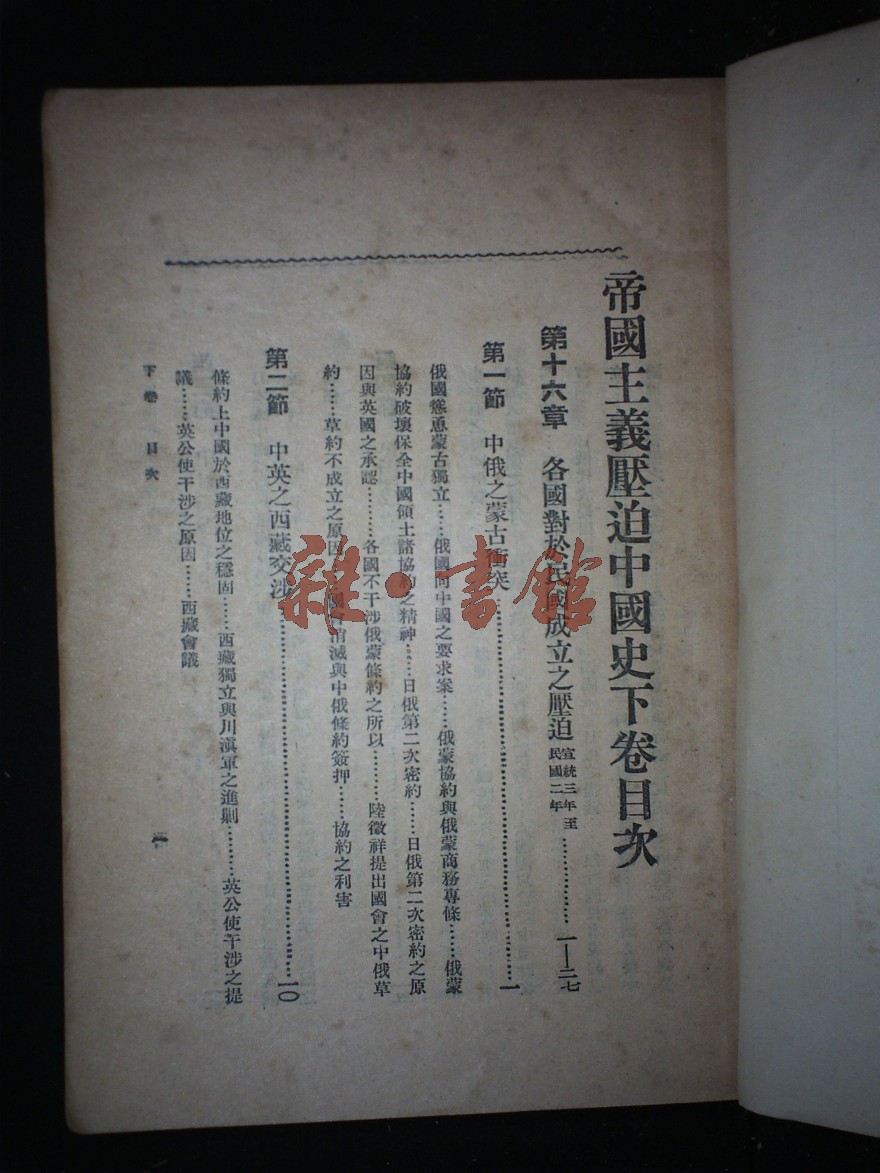 帝國主義壓迫中國史下卷目次
第十六章　各國對於民國成立之壓迫 宣統三年至民國二年……………一—二七
第一節　中俄之蒙古衝突……………一
俄國慫恿蒙古獨立……俄國向中國之要求案……俄蒙協約與俄蒙商務專條……俄蒙
協約破壞保全中國領土諸協約之精神……日俄第二次密約……日俄第二次密約之原
因與英國之承認………各國不干涉俄蒙條約之所以………陸徵祥提出國會之中俄草
約……草約不成立之原因……國會消滅與中俄條約簽押……協約之利害
第二節　中英之西藏交涉……………一〇
條約上中國於西藏地位之穩固……西藏獨立與川滇軍之進剿………英公使干涉之提
議……英公使干涉之原因……西藏會議
下卷　目次
一
雜·書館